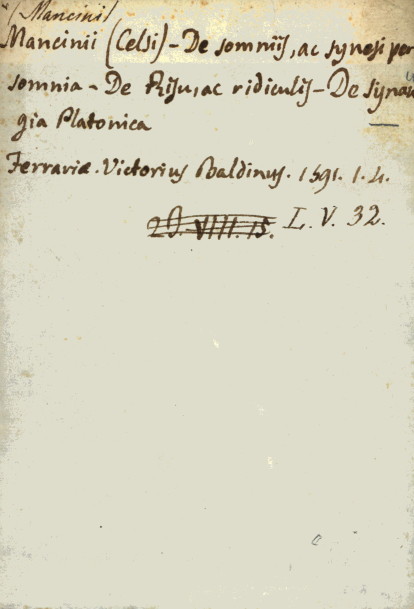 (Mancini)
Mancinii (Celsi) - De somnijs, ac synesi per
somnia - De Risu, ac ridiculis - De synau
gia Platonica
Ferrariæ. Victorius Baldinus. 1591. 1. 4.
20. VIII. 15. L. V. 32.